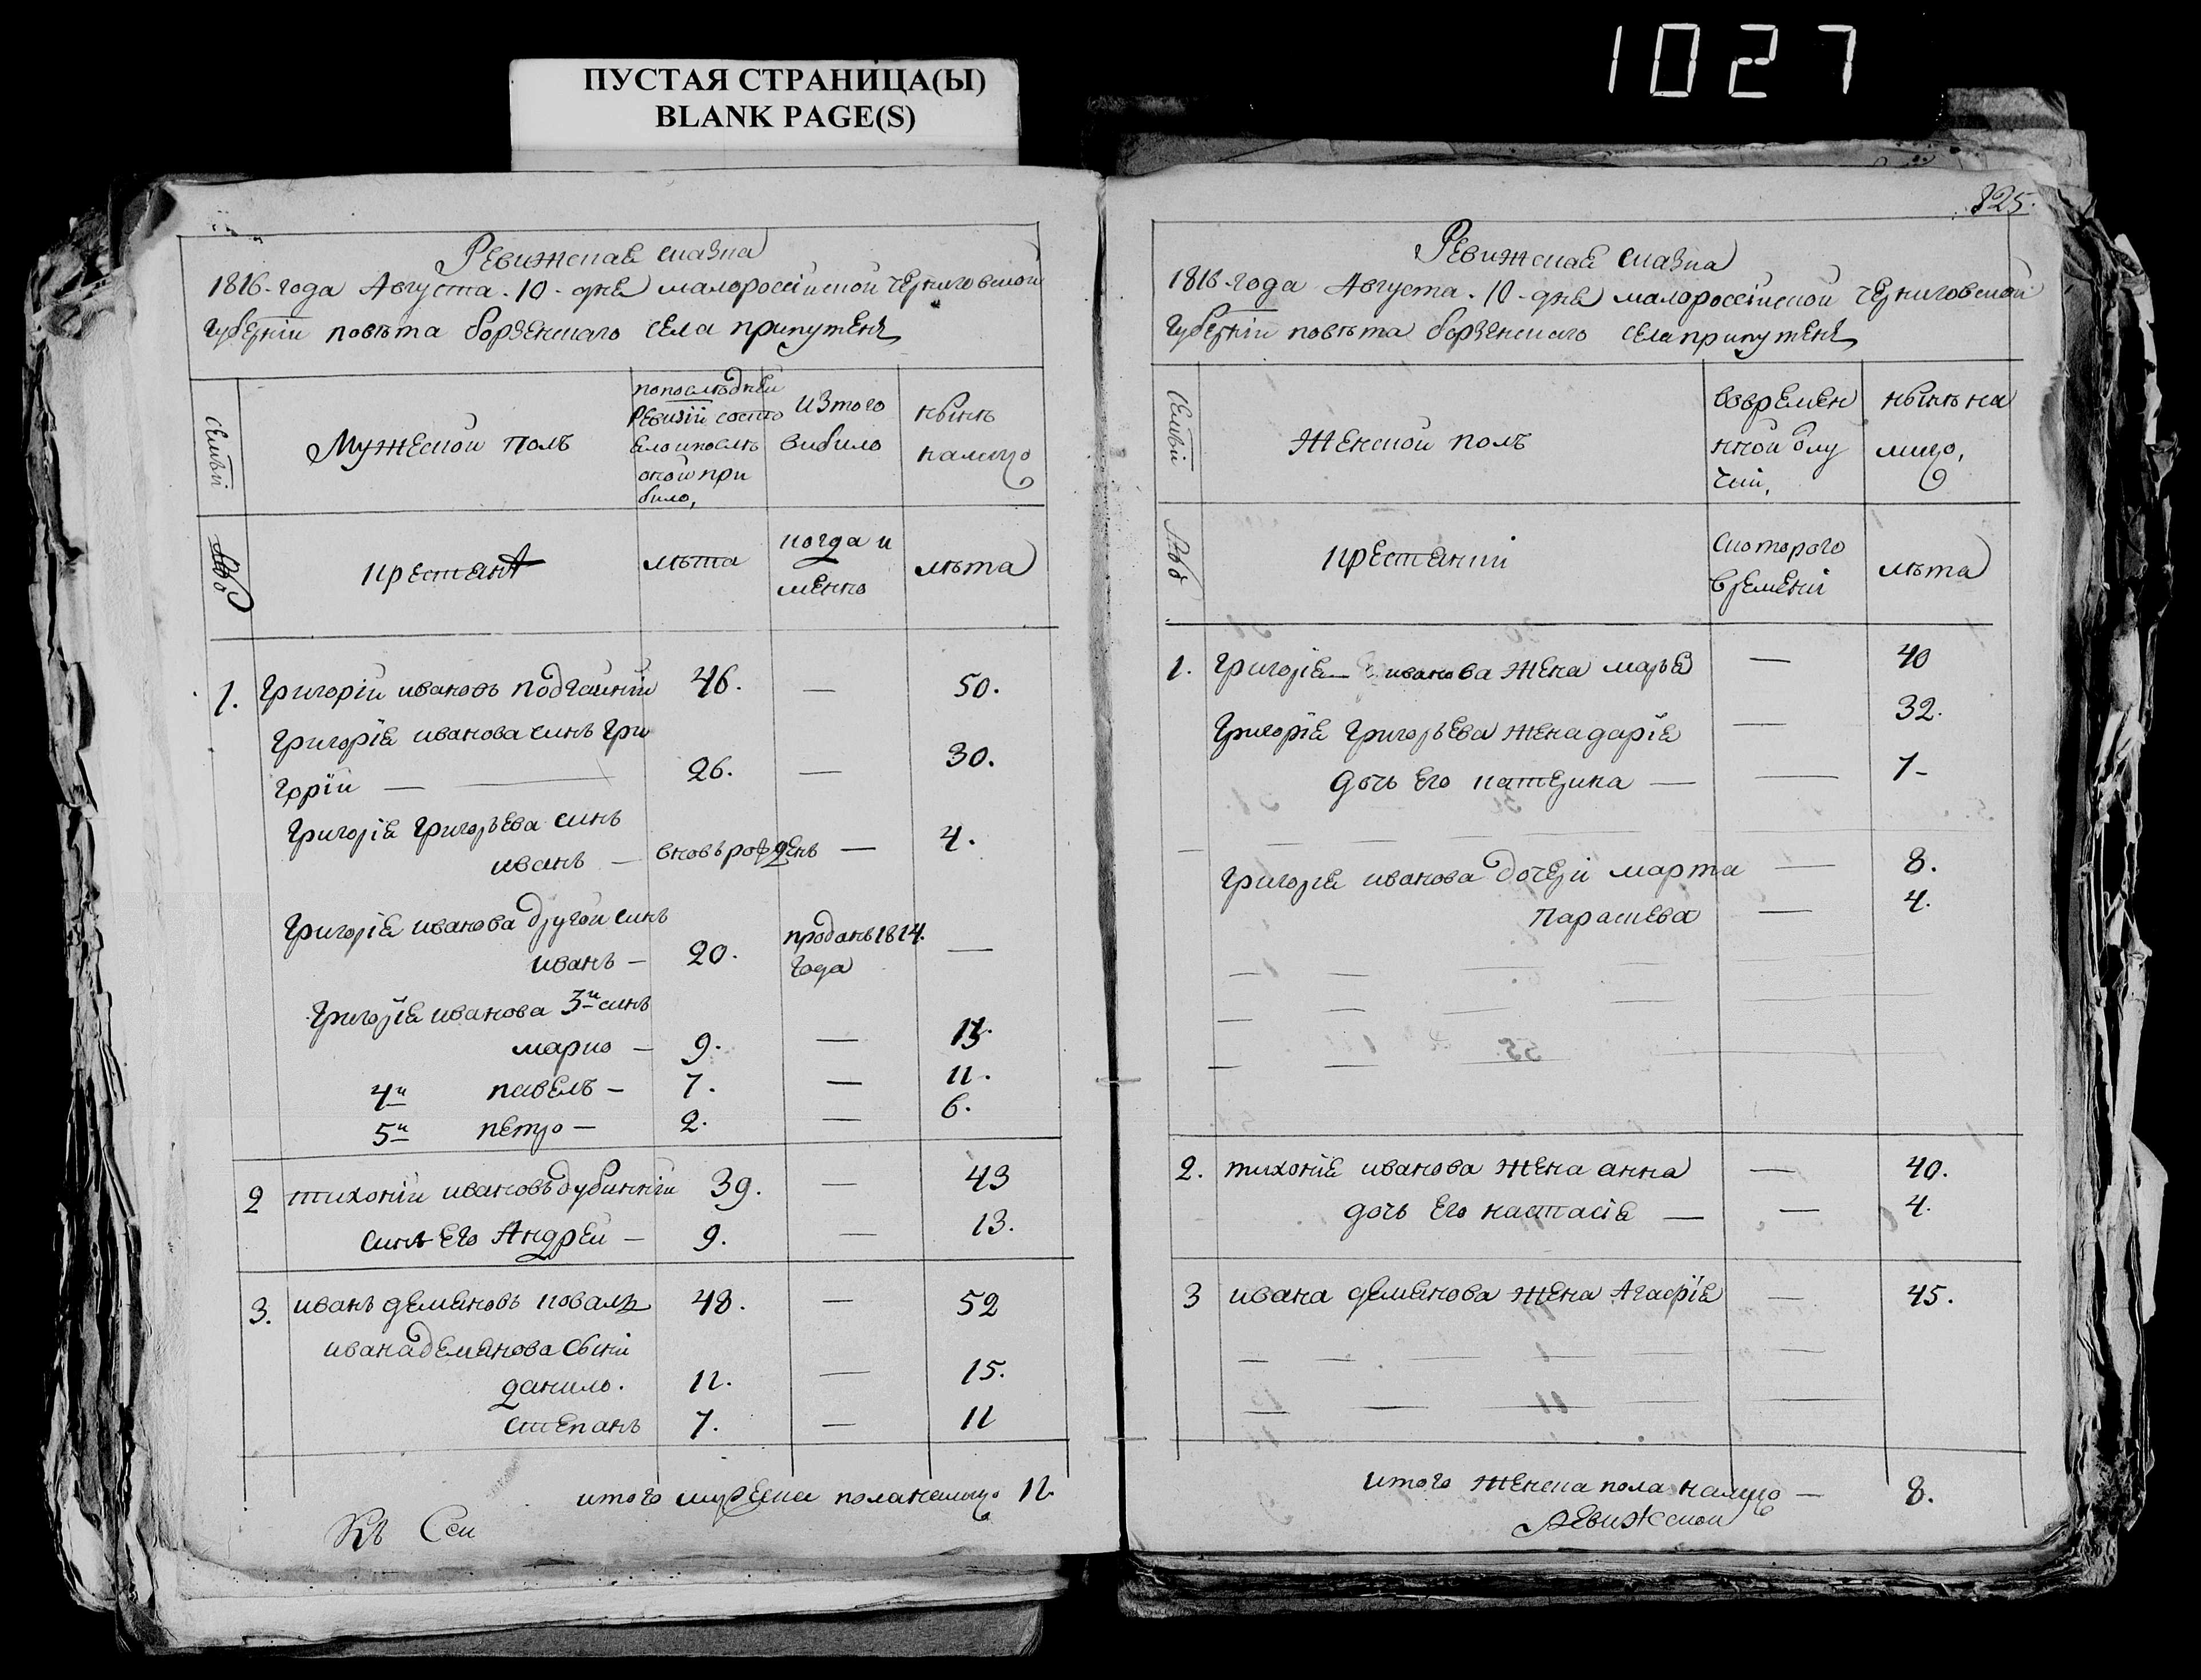 1027
ПУСТАЯ СТРАНИЦА(Ы)
BLANK PAGE(S)
Ревижская сказка
1816-года Августа. 10-дня малороссійской черниговской
губерніи повѣта борзенскаго села припутень
семьи
Мужеской полъ
попоследней
ревизіи состо
яло ипослѣ
оной при
било,
Изтого
вибило
нынѣ
налицо
№
крестяня
лѣта
когда и
менно
лѣта
1. Григорій ивановъ подгайній 46. — 50.
Григорія иванова синъ Гри
горій — 26. — 30.
Григорія Григорьева синъ
иванъ — вновьрожденъ — 4.
Григорія иванова другой синъ
иванъ — 20. проданъ 1814. —
года
Григорія иванова 3й синъ
марко — 9. — 13.
4й павелъ — 7. — 11.
5й петро — 2. — 6.
2 тихоній ивановъ дубинній 39. — 43
синъ его Андрей — 9. — 13.
3. иванъ демяновъ коваль 48. — 52
ивана демянова сыни
данило. 11. — 15.
степанъ 7. — 11
итого мужеска пола налицо 11.
Къ Сей
825.
Ревижская сказка
1816-года Августа. 10-дня малороссійской черниговской
губерніи повѣта борзенскаго села припутень
семьи
Женской полъ
вовремен
нной отлу
чки,
нынѣ на
лицо,
№
крестянки
скоторого
времени
лѣта
1. Григорія иванова жена марья — 40
Григорія Григорьева жена дарія — 32.
дочь его катерина — — 1-
Григорія иванова дочери марта — 8.
параскева — 4.
2. тихонія иванова жена анна — 40.
дочь его настасія — — 4.
3 ивана демянова жена Агафія — 45.
итого женска пола налицо — 8.
Ревижской